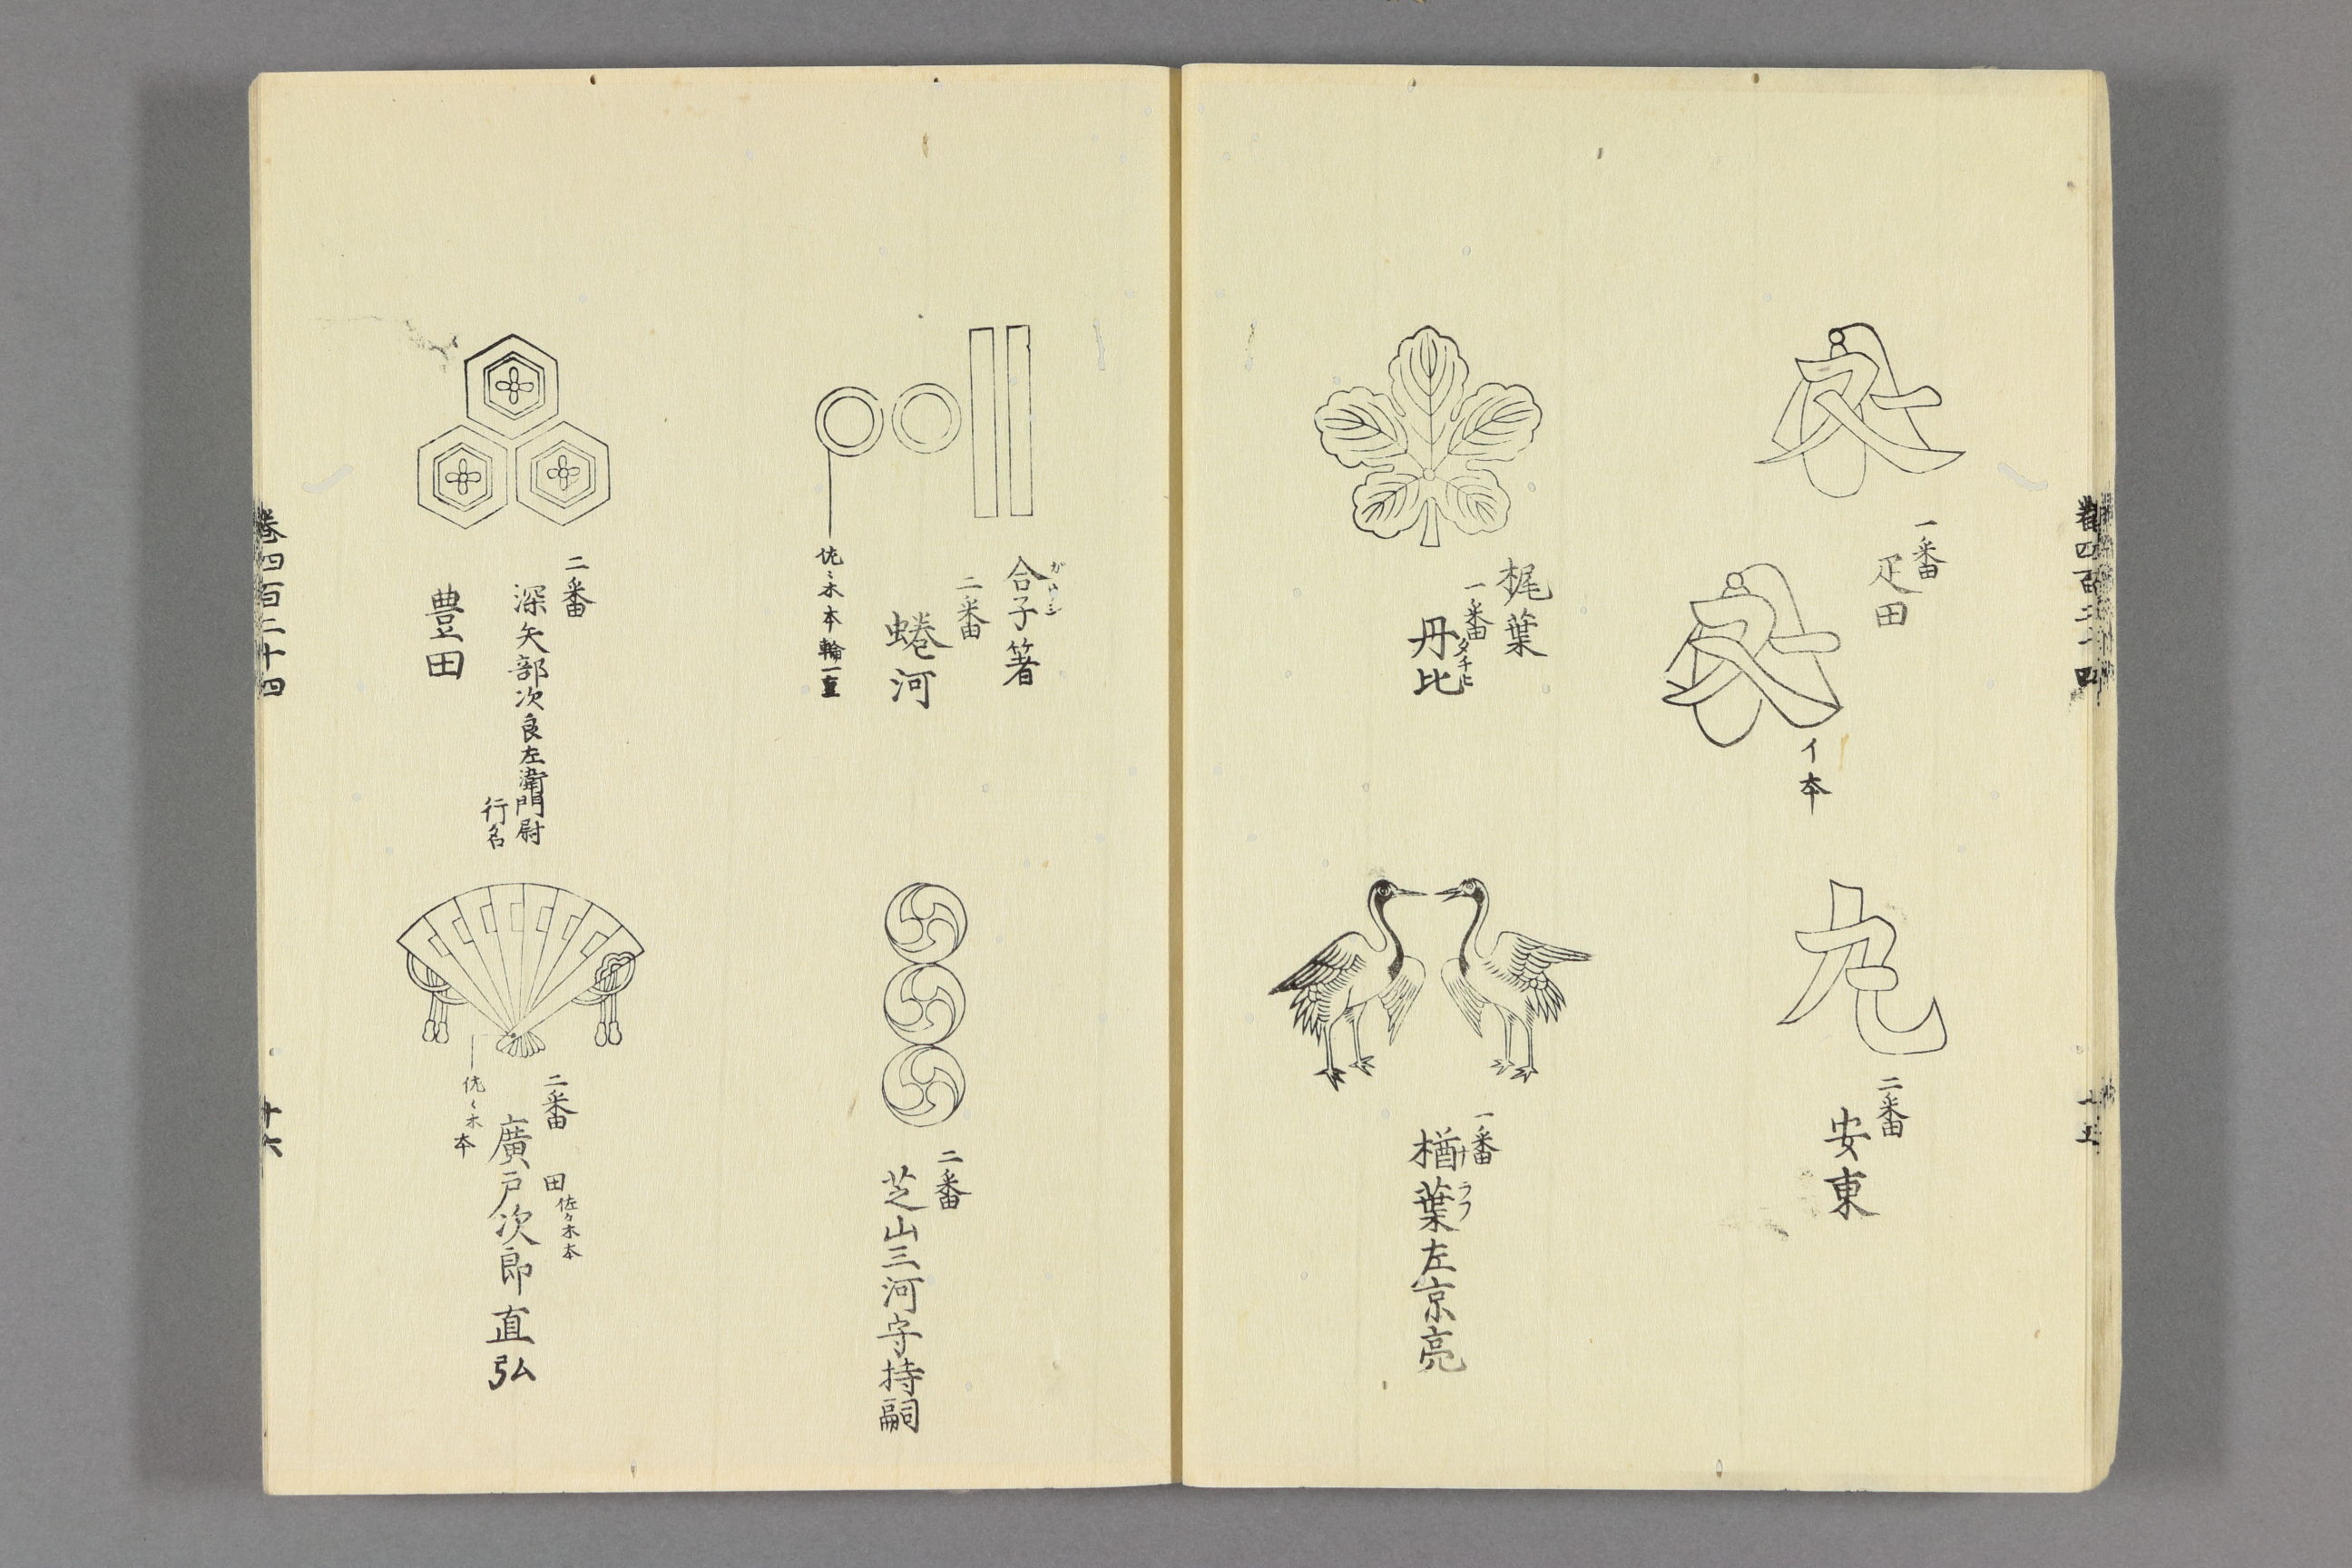 一番
疋田
イ本
二番
安東
梶葉
一番
丹比
タチヒ
一番
楢葉左京亮
ナラハ
合子箸
がうし
二番
蜷河
佐々木本輪一重
二番
芝山三河守持嗣
二番
深矢部次良左衛門尉
行名
豊田
二番
田佐々木本
廣戸次郎直弘
佐々木本
巻四百二十四
十六